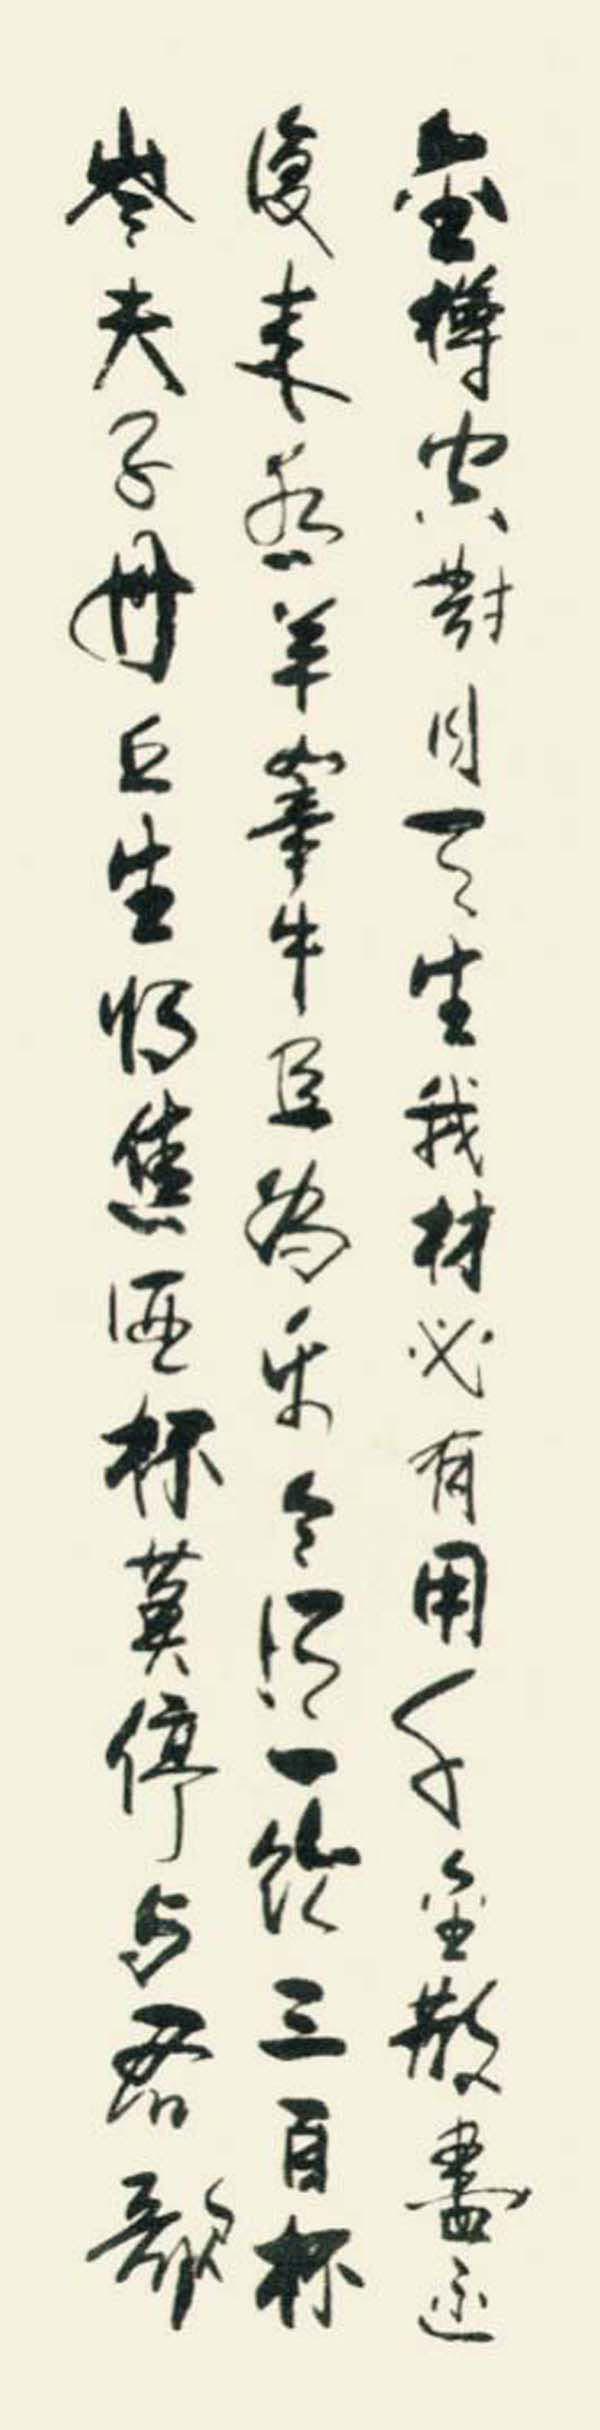 金樽空對月天生我材必有用千金散盡還
復來烹羊宰牛且為乐會須一飲三百杯
岑夫子丹丘生將進酒杯莫停与君歌